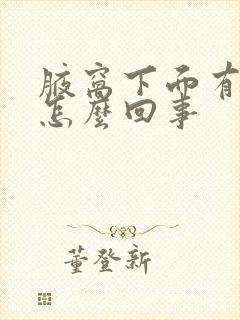 腋窩下而有
怎麼回事
董登新